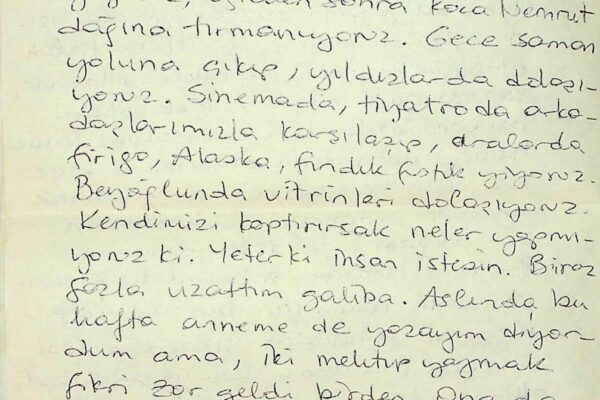 sonra koca Nemrut
dağına tırmanıyoruz. Gece saman
yoluna çıkıp, yıldızlarda dolaşı-
yoruz. Sinemada, tiyatroda arka-
daşlarımızla karşılaşıp, aralarda
firigo, Alaska, fındık fıstık yiyoruz.
Beyoğlunda vitrinleri dolaşıyoruz.
Kendimizi kaptırırsak neler yapmı-
yoruz ki. Yeterki insan istesin. Biraz
fazla uzattım galiba. Aslında bu
hafta anneme de yazayım diyor-
dum ama, iki mektup yazmak
fikri zor geldi birden. Ona da